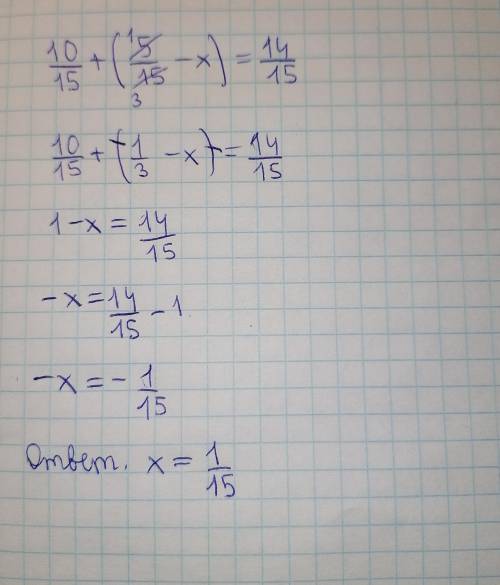 10/15 + (5/15 − x) = 14/15
1 3
10/15 + (1/3 − x) = 14/15
1 − x = 14/15
−x = 14/15 − 1
−x = − 1/15
Ответ. x = 1/15